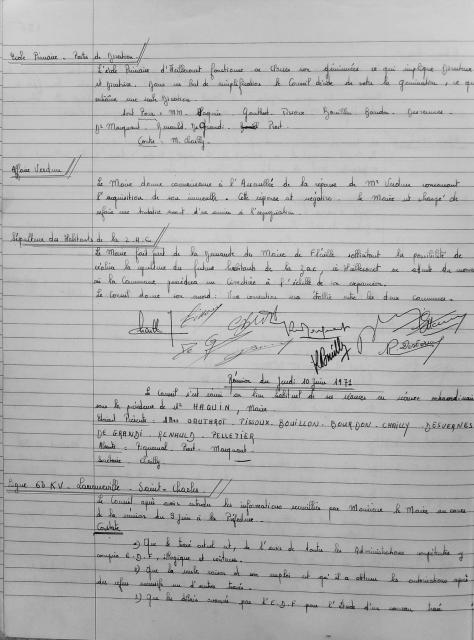 Ecole Primaire - Poste de Direction
L'école Primaire d'Haillecourt fonctionne en classes non géminées ce qui implique Directeur
et Directrice. Dans un but de simplification le Conseil décide de voter la gemination, ce qui
entraîne une seule Direction.
dont Pour : MM. Haquin Gauthrot Tisioux Bouillon Bourdon Desvernes
De Marquant. Renauld. De Grandi. Pirot.
Contre : M. Chailly.
Affaire Verdun
Le Maire donne connaissance à l'Assemblée de la réponse de Mr Verdun concernant
l'acquisition de son immeuble. Cette réponse est négative. Le Maire est chargé de
refaire une tentative avant d'en arriver à l'expropriation.
Sépulture des Habitants de la Z.A.C
Le Maire fait part de la demande du Maire de Fléville sollicitant la possibilité de
la sépulture des futurs habitants de la ZAC, à Haillecourt en attendant du moment
où la Commune possèdera un Cimetière à l'échelle de son expansion.
Le Conseil donne son accord. Une convention sera établie entre les deux communes.
Réunion du Jeudi 10 Juin 1971
Le Conseil s'est réuni au lieu habituel de ses séances en séance extraordinaire
sous la présidence de Mr HAQUIN, Maire
Etaient Présents : MM GAUTHROT - TISIOUX - BOUILLON - BOURDON - CHAILLY - DESVERNES
DE GRANDI - RENAULD - PELLETIER
Absents : Piquemal Pirot. Marquant
Secrétaire Chailly
Ligne 63 KV. Laneuveville - Saint-Charles
Le Conseil après avoir entendu les informations recueillies par Monsieur le Maire au cours
de la réunion du 9 Juin à la Préfecture.
Constate
1) Que le tracé actuel est, de l'avis de toutes les Administrations compétentes y
compris E.D.F, illogique et coûteux.
2) Que la seule raison de son emploi est qu'il a obtenu les autorisations après
des refus successifs sur d'autres tracés.
3) Que les délais avancés par l'E.D.F pour l'étude d'un nouveau tracé